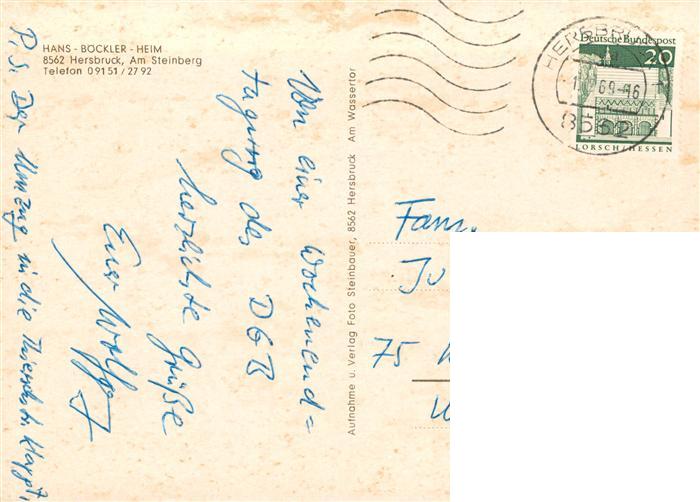 HANS - BÖCKLER - HEIM
8562 Hersbruck, Am Steinberg
Telefon 09151/2792
Von einer Wochenend=
tagung des DGB
herzlichste Grüße
Euer Wolfgang
P.S. Der Umzug in die klappt,
Aufnahme u. Verlag Foto Steinbauer, 8562 Hersbruck Am Wassertor
HERSBRUCK
69-16
8562
Deutsche Bundespost
20
LORSCH/HESSEN
Fam.
75